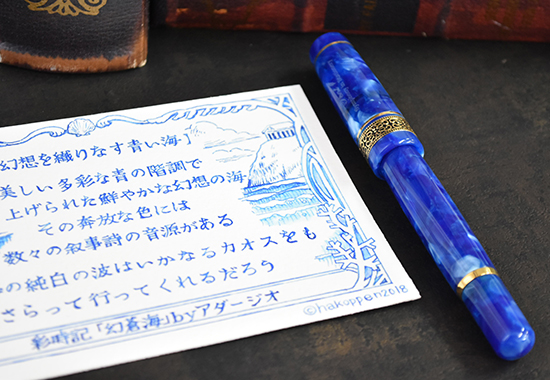 幻想を織りなす青い海]
美しい多彩な青の階調で
上げられた鮮やかな幻想の海
その奔放な色には
数々の叙事詩の音源がある
の純白の波はいかなるカオスをも
さらって行ってくれるだろう
彩時記「幻蒼海」byアダージオ
©hakoppen2018